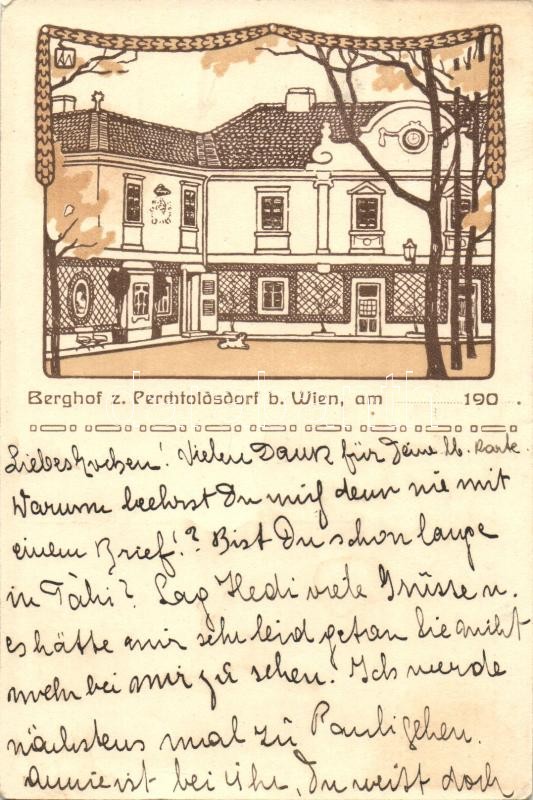 Berghof z. Perchtoldsdorf b. Wien, am 190 .
Liebes ! Vielen Dank für Deine lb. Karte.
Warum beehrst Du mich denn nie mit
einem Brief!? Bist Du schon lange
in Tahi? Sag Hedi viele Grüsse u.
es hätte mir sehr leid getan Sie nicht
mehr bei mir zu sehen. Ich werde
nächstens mal zu Pauli gehen.
Annie ist bei ihr, Du weißt doch